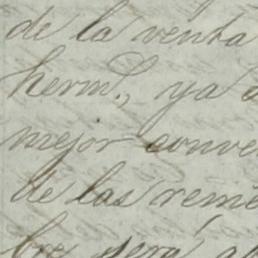 de la venta
herm., ya
mejor conve
de las reme
bre será a